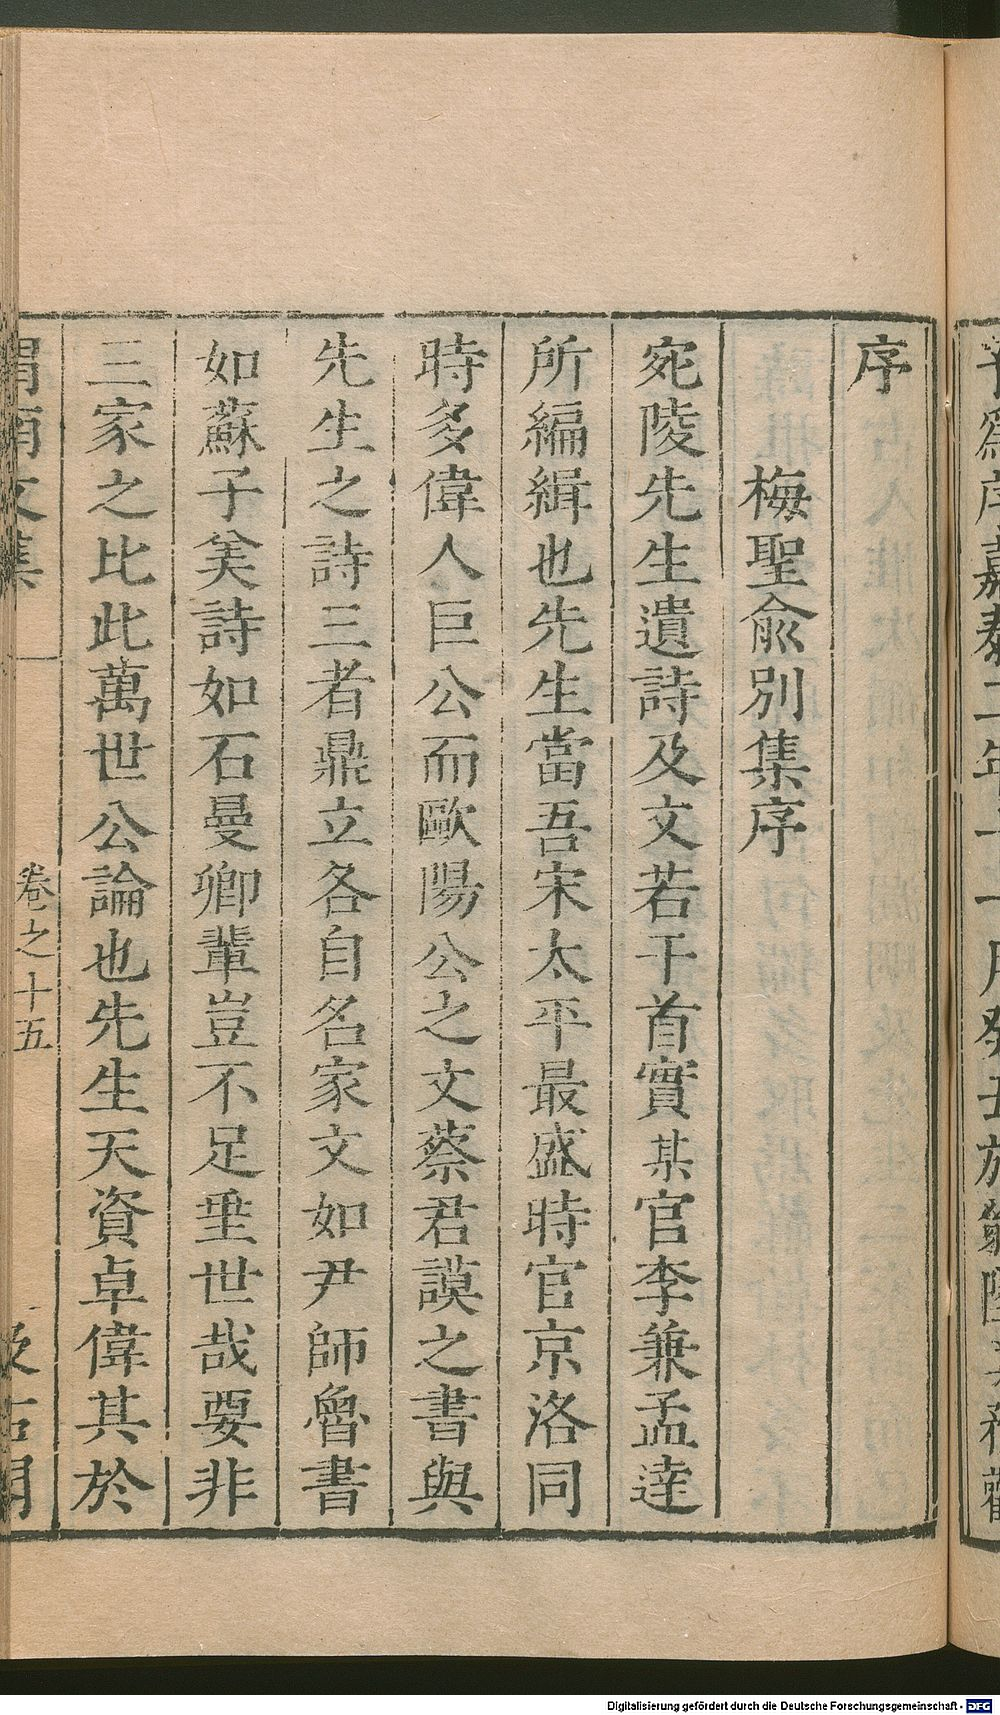 序
梅聖俞別集序
宛陵先生遺詩及文若干首實某官李兼孟達
所編緝也先生當吾宋太平最盛時官京洛同
時多偉人巨公而歐陽公之文蔡君謨之書與
先生之詩三者鼎立各自名家文如尹師魯書
如蘇子美詩如石曼卿輩豈不足垂世哉要非
三家之比此萬世公論也先生天資卓偉其於
渭南文集
卷之十五
汲古閣
Digitalisierung gefördert durch die Deutsche Forschungsgemeinschaft - DFG